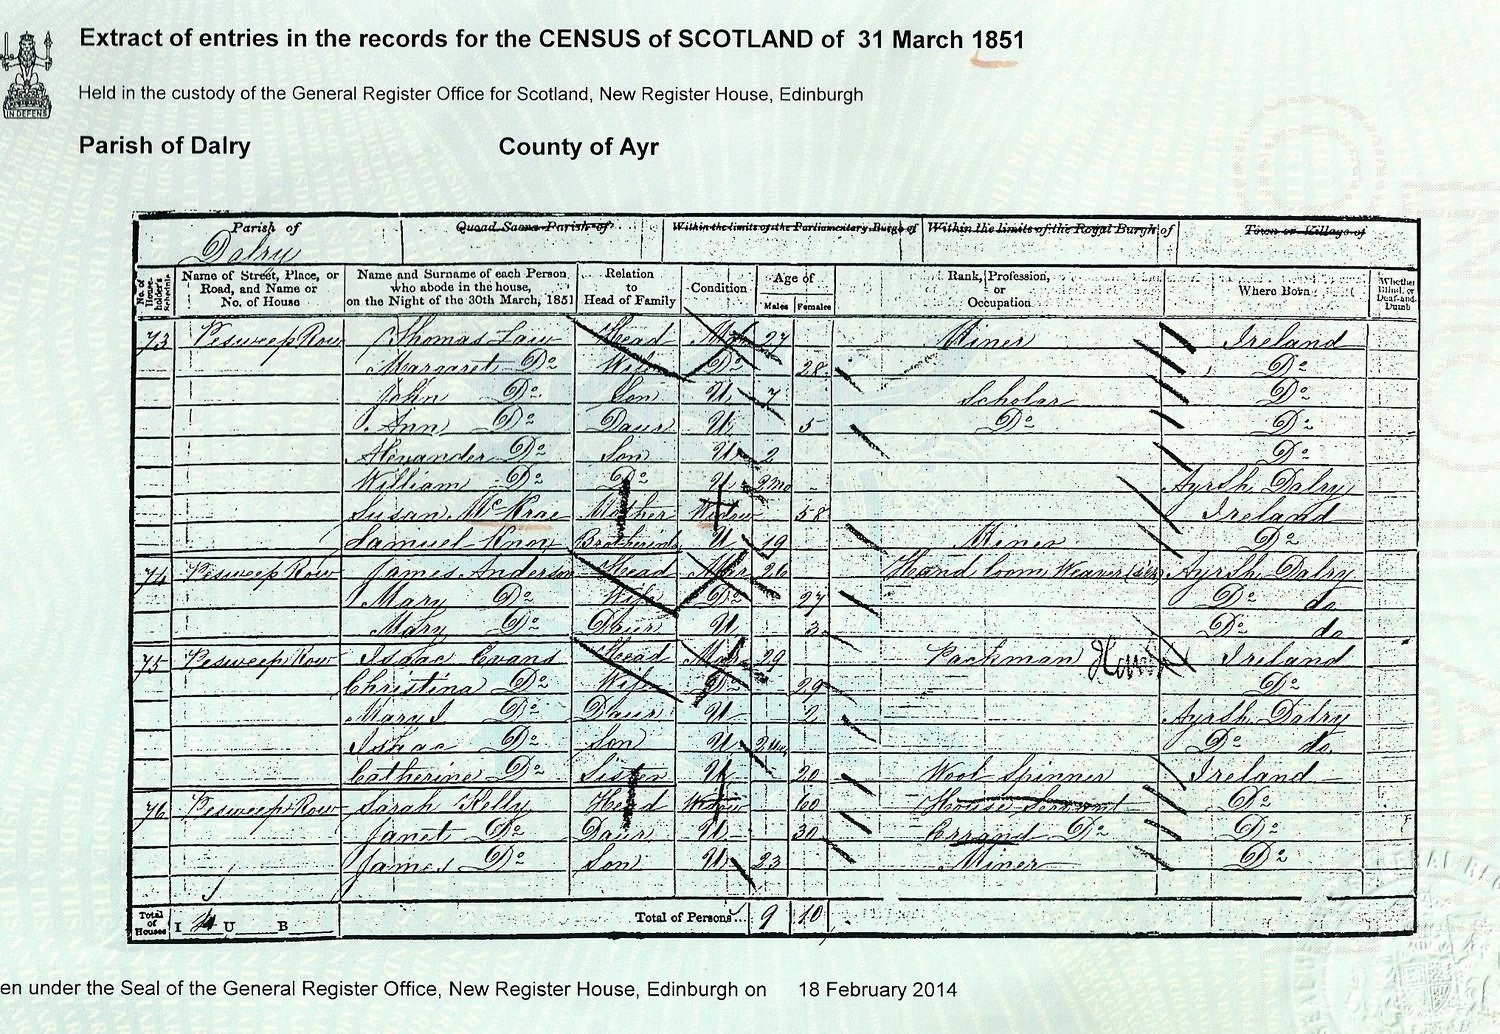 IN DEFENS
Extract of entries in the records for the CENSUS of SCOTLAND of 31 March 1851
Held in the custody of the General Register Office for Scotland, New Register House, Edinburgh
Parish of Dalry County of Ayr
Parish of Quoad Sacra Parish of Within the limits of the Parliamentary Burgh of Within the limits of the Royal Burgh of Town or Village of
Dalry
No. of House-holder's Schedule Name of Street, Place, or Road, and Name or No. of House Name and Surname of each Person who abode in the house, on the Night of the 30th March, 1851 Relation to Head of Family Condition Age of Males Females Rank, Profession, or Occupation Where Born Whether Blind, or Deaf-and-Dumb
73 Pesweep Row Thomas Law Head Mar 27 Miner Ireland
Margaret Do Wife Do 28 Do
John Do Son U 7 Scholar Do
Ann Do Daur U 5 Do Do
Alexander Do Son U 2 Do
William Do Do U 2 mo Ayrsh. Dalry
Susan McKrae Mother Widow 58 Ireland
Samuel Knox U 19 Miner Do
74 Pesweep Row James Anderson Head Mar 26 Hand loom Weaver Ayrsh. Dalry
Mary Do Wife Do 27 Do do
Mary Do Daur U 3 Do do
75 Pesweep Row Isaac Evans Head Mar 29 Packman Ireland
Christina Do Wife Do 29 Do
Mary J Do Daur U 2 Ayrsh. Dalry
Isaac Do Son U Do do
Catherine Do Sister U 20 Wool Spinner Ireland
76 Pesweep Row Sarah Kelly Head Widow 60 House Servant Do
Janet Do Daur U 30 Errand Do Do
James Do Son U 23 Miner Do
Total of Houses I 4 U B Total of Persons... 9 10
en under the Seal of the General Register Office, New Register House, Edinburgh on 18 February 2014